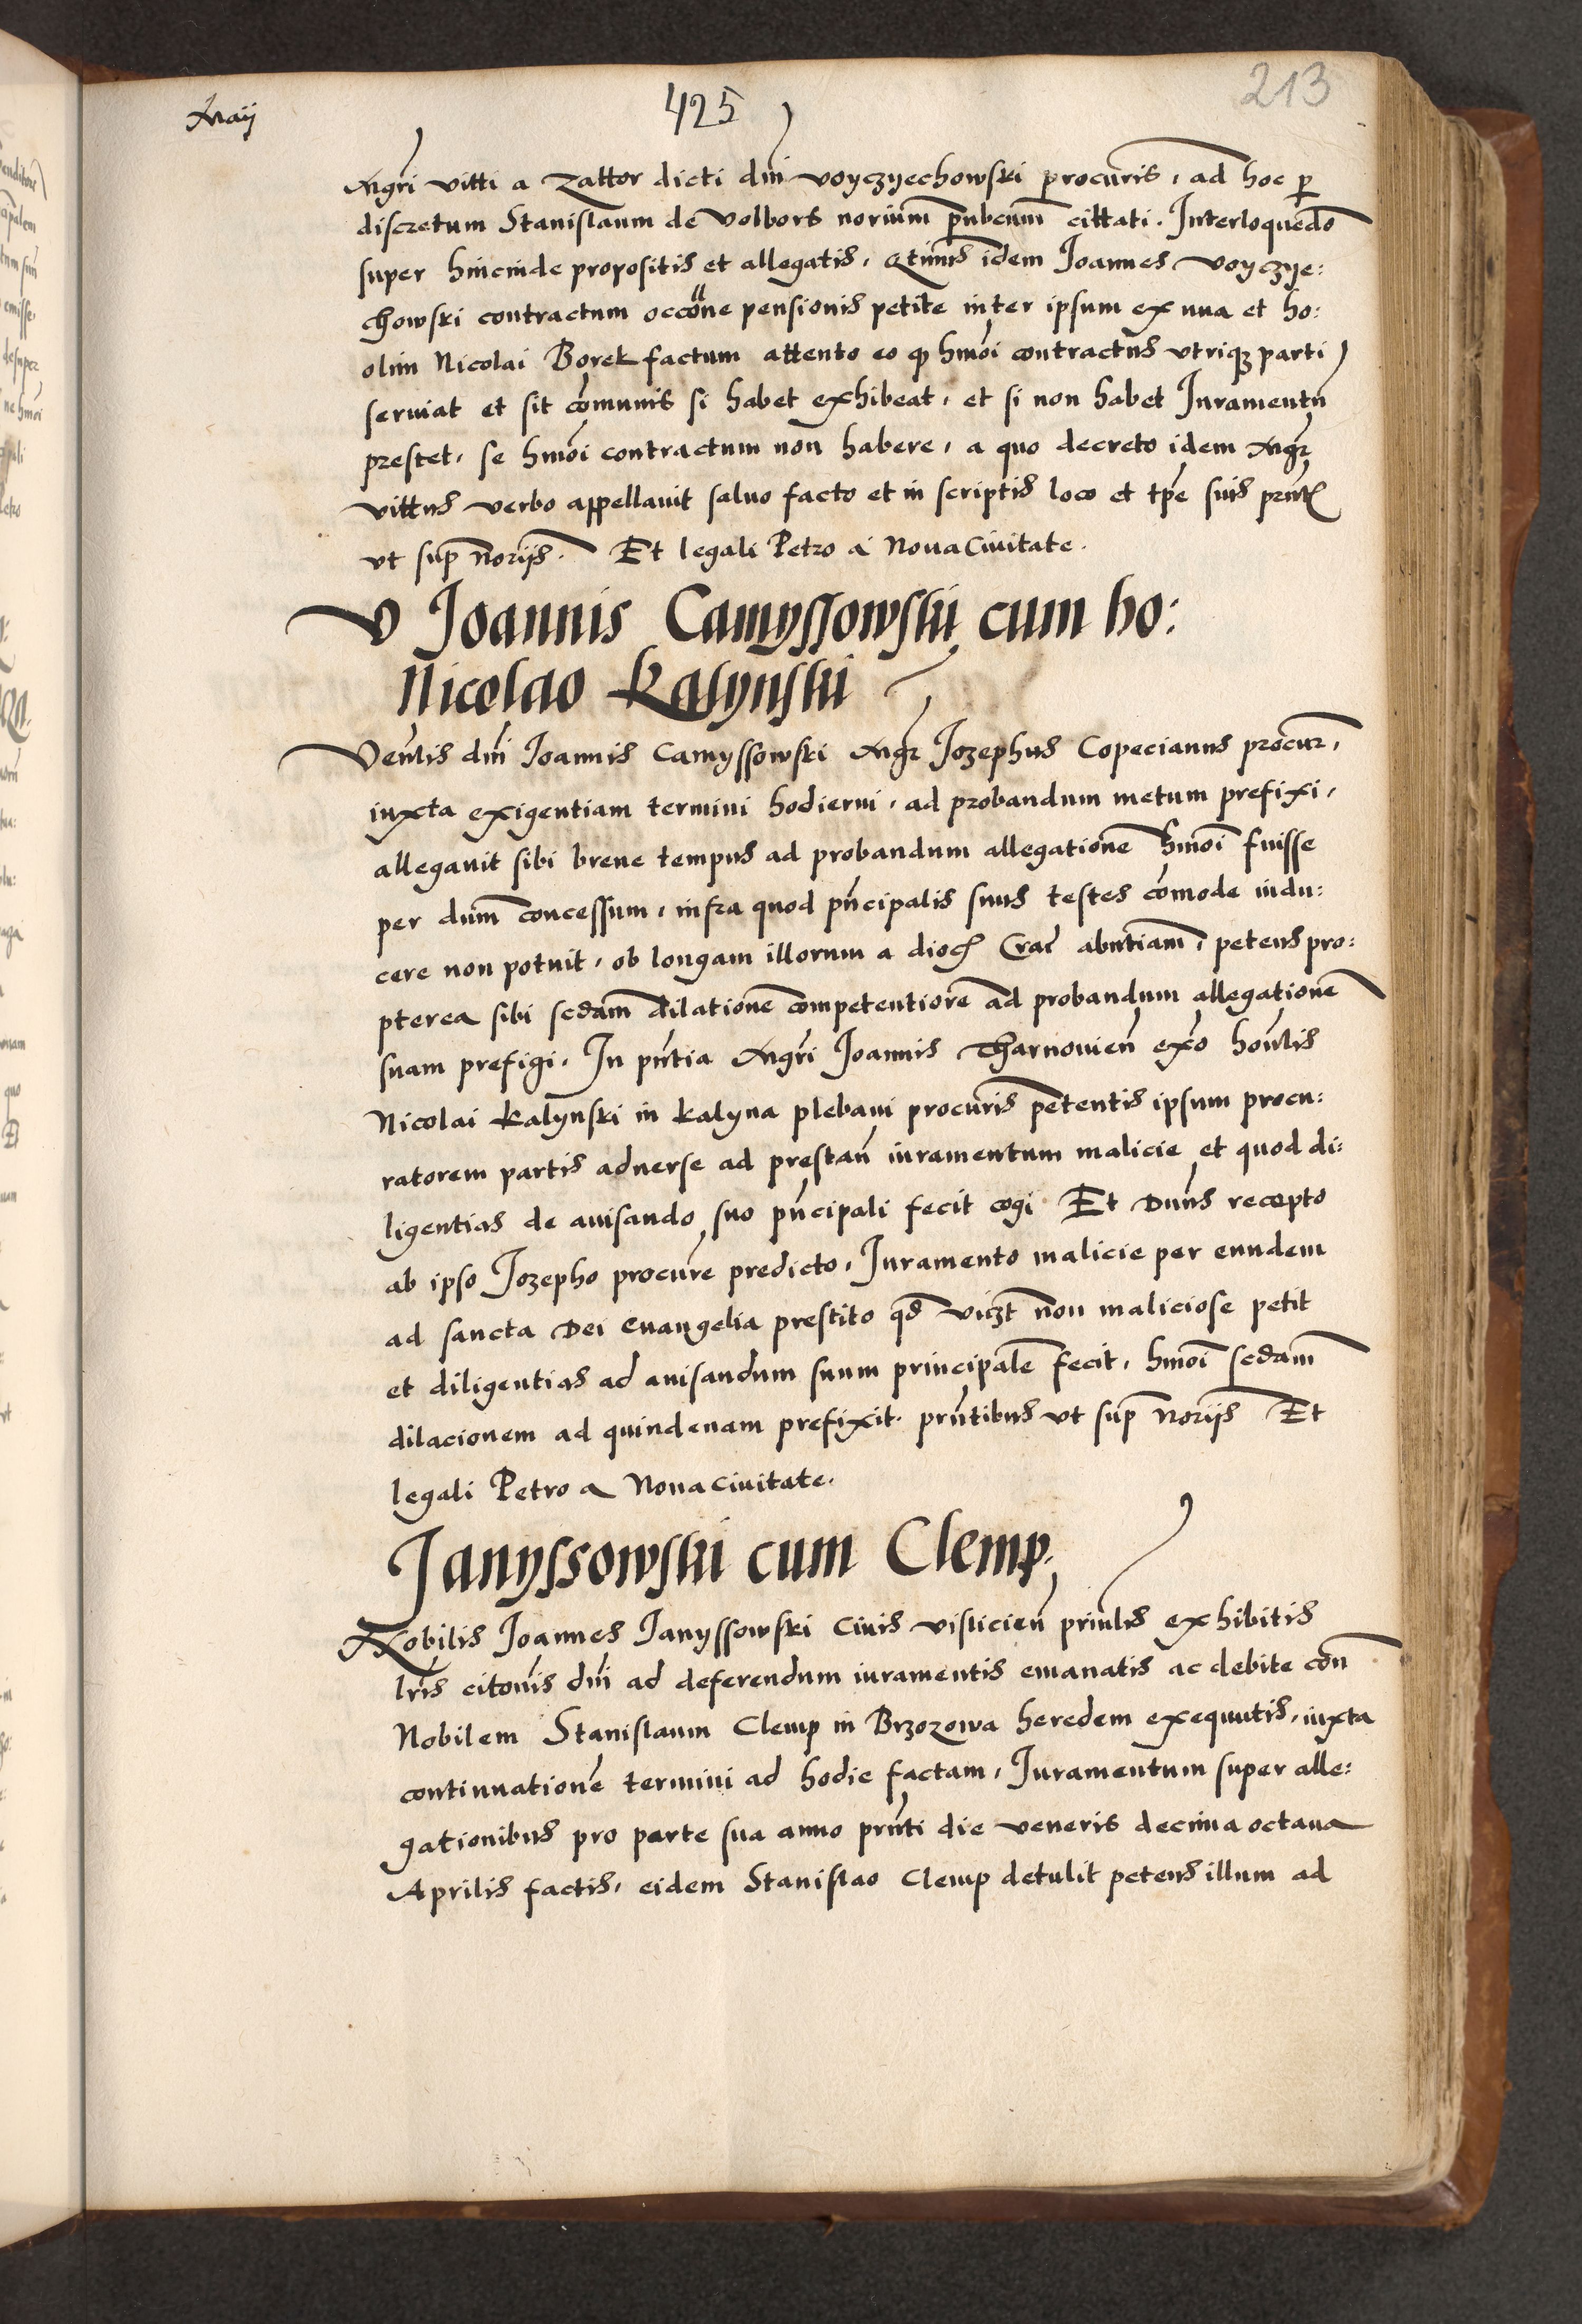 Maij
425
213
Mgri Vitti a Zattor dicti dni Voyczyechowski procuris, ad hoc p
discretum Stanislaum de Volbors norium pnbcum cittati. Interloquedo
super hincinde propositis et allegatis, idem Joannes Voyczye:
chowski contractum occone pensionis petite inter ipsum ex una et ho:
olim Nicolai Borek factum attento eo q hmoi contractus utriqz parti
serviat et sit comunis si habet exhibeat, et si non habet Juramentu
prestet, se hmoi contractum non habere, a quo decreto idem Mgr
Vittus verbo appellavit salvo facto et in scriptis loco et tpe suis prnt
ut sup norijs. Et legali Petro a Nova Civitate.
V Joannis Camyssowski cum ho:
Nicolao Kalynski
Venlis dni Joannis Camyssowski Mgr Jozephus Copecianus procur,
iuxta exigentiam termini hodierni, ad probandum metum prefixi,
allegavit sibi breve tempus ad probandum allegatione hmoi fuisse
per dum concessum, infra quod pncipalis suus testes comode indu:
cere non potuit, ob longam illorum a dioc Crac abntiam, petens pro:
pterea sibi scdam dilatione competentiore ad probandum allegatione
suam prefigi. In pntia Mgri Joannis Tharnovien exo honlis
Nicolai Kalynski in Kalyna plebani procuris petentis ipsum procu:
ratorem partis adverse ad prestan iuramentum malicie et quod di:
ligentias de avisando suo pncipali fecit cogi. Et Duns recepto
ab ipso Jozepho procure predicto, Juramento malicie per eundem
ad sancta Dei Evangelia prestito qd viczt non maliciose petit
et diligentias ad avisandum suum principale fecit, hmoi scdam
dilacionem ad quindenam prefixit. prntibus ut sup norijs Et
legali Petro a Nova Civitate.
Janyssowski cum Clemp.
Nobilis Joannes Janyssowski Civis Visticien prinlis exhibitis
lris citonis dni ad deferendum iuramentis emanatis ac debite con
Nobilem Stanislaum Clemp in Brzozowa heredem exequutis, iuxta
continuatione termini ad hodie factam, Juramentum super alle:
gationibus pro parte sua anno prnti die Veneris decima octava
Aprilis factis, eidem Stanislao Clemp detulit petens illum ad